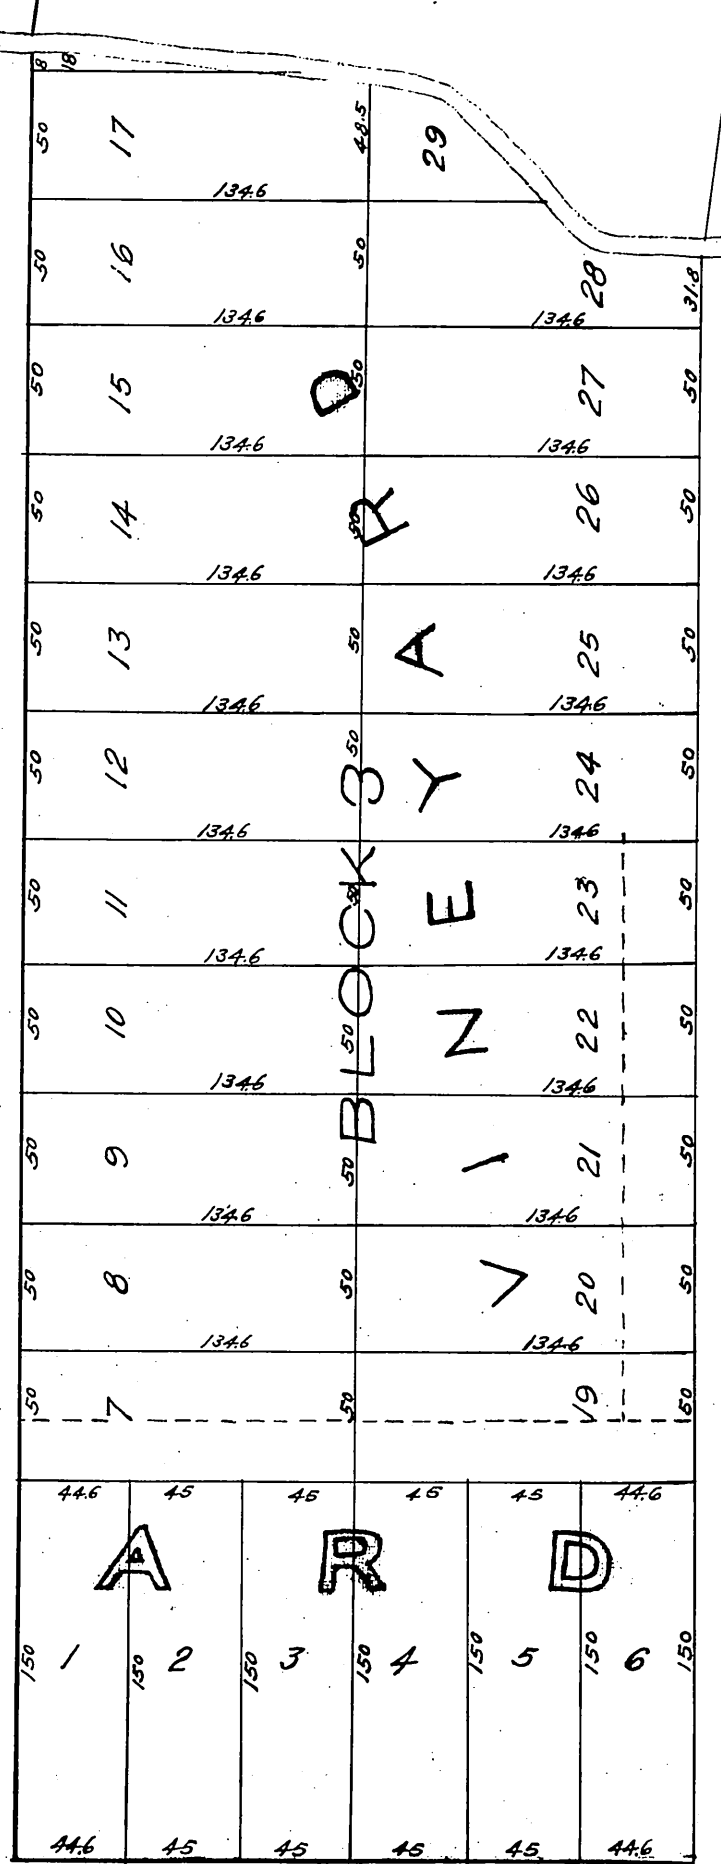 8 18
50 17 48.5 29
134.6
50 16 50 28 31.8
134.6 134.6
50 15 50 27 50
134.6 134.6
50 14 50 26 50
134.6 134.6
50 13 50 25 50
134.6 134.6
50 12 50 24 50
134.6 134.6
50 11 50 23 50
134.6 134.6
50 10 50 22 50
134.6 134.6
50 9 50 21 50
134.6 134.6
50 8 50 20 50
134.6 134.6
50 7 50 19 50
BLOCK 3
VINEYARD
44.6 45 45 45 45 44.6
ARD
150 1 150 2 150 3 150 4 150 5 150 6 150
44.6 45 45 45 45 44.6